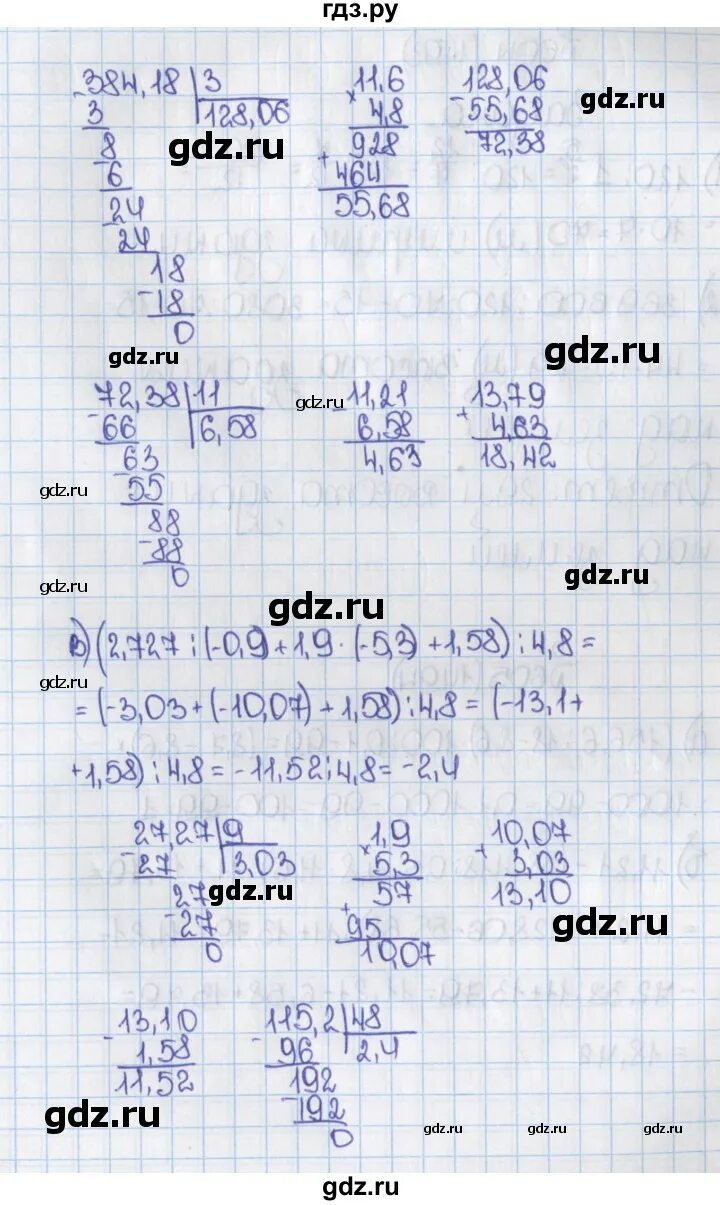 гдз.ру
384,18 |3
3 128,06
8
6
24
24
18
-18
0
11,6
× 4,8
928
+ 464
55,68
128,06
- 55,68
72,38
gdz.ru
gdz.ru
gdz.ru
gdz.ru
72,38 |11
- 66 6,58
63
- 55
88
- 88
0
gdz.ru
- 11,21
6,58
4,63
13,79
+ 4,63
18,42
gdz.ru
gdz.ru
gdz.ru
gdz.ru
в) (2,727 : (-0,9) + 1,9 · (-5,3) + 1,58) : 4,8 =
gdz.ru
= (-3,03 + (-10,07) + 1,58) : 4,8 = (-13,1 +
+1,58) : 4,8 = -11,52 : 4,8 = -2,4
27,27 |9
- 27 3,03
27
- 27
0
gdz.ru
1,9
× 5,3
57
+ 95
10,07
10,07
+ 3,03
13,10
gdz.ru
- 13,10
1,58
11,52
115,2 |48
- 96 2,4
192
- 192
0
gdz.ru
gdz.ru
gdz.ru
gdz.ru
gdz.ru